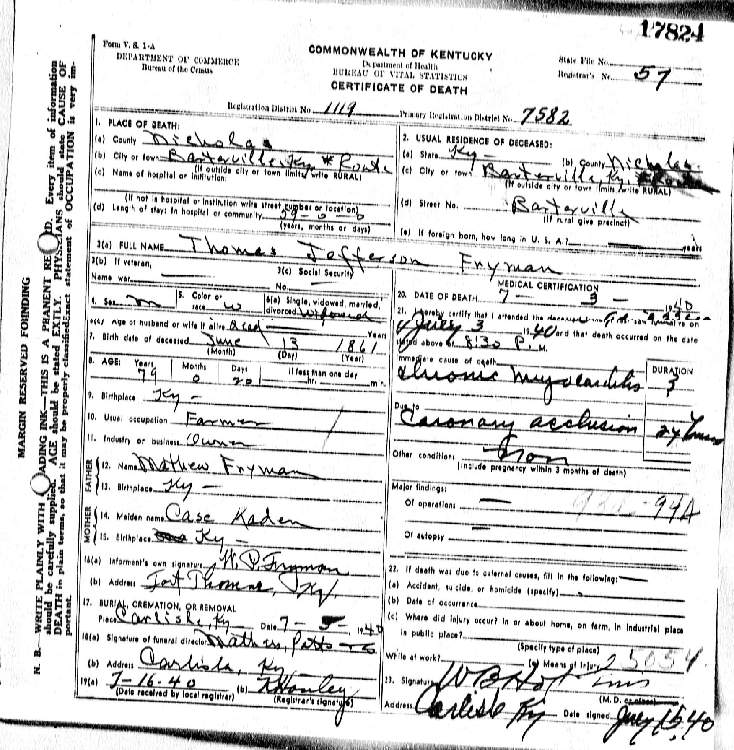 17824
Form V. S. 1-A
DEPARTMENT OF COMMERCE
Bureau of the Census
COMMONWEALTH OF KENTUCKY
Department of Health
BUREAU OF VITAL STATISTICS
CERTIFICATE OF DEATH
State File No.
Registrar's No. 57
Registration District No. 1119 Primary Registration District No. 7582
1. PLACE OF DEATH:
(a) County Nicholas
(b) City or town Barterville, Ky # Route
(If outside city or town limits, write RURAL)
(c) Name of hospital or institution:
(If not in hospital or institution write street number or location)
(d) Length of stay: In hospital or community 79-0-0
(years, months or days)
2. USUAL RESIDENCE OF DECEASED:
(a) State Ky - (b) County Nicholas
(c) City or town Barterville Ky. # Route
(If outside city or town limits write RURAL)
(d) Street No. Barterville
(If rural give precinct)
(e) If foreign born, how long in U. S. A.?
3(a) FULL NAME Thomas Jefferson Fryman
3(b) If veteran,
Name war
3(c) Social Security
No.
4. Sex m 5. Color or race w 6(a) Single, widowed, married, divorced Widowed
6(b) Age of husband or wife if alive Dead Years
7. Birth date of deceased June 13 1861
(Month) (Day) (Year)
8. AGE: Years 79 Months 0 Days 20 If less than one day
hr. min.
9. Birthplace Ky -
10. Usual occupation Farmer
11. Industry or business Owner
FATHER
12. Name Mathew Fryman
13. Birthplace Ky -
MOTHER
14. Maiden name Case Kaden
15. Birthplace Ky -
16(a) Informant's own signature Fryman
(b) Address Fort Thomas, Ky
17. BURIAL, CREMATION, OR REMOVAL
Place Carlisle, Ky - Date 7-5 1940
18(a) Signature of funeral director Mathers, Potts
(b) Address Carlisle, Ky -
19(a) 7-16-40 (b)
(Date received by local registrar) (Registrar's signature)
MEDICAL CERTIFICATION
20. DATE OF DEATH 7 - 3 - 1940
21. I hereby certify that I attended the deceased
July 3 1940 and that death occurred on the date
stated above at 8:30 P. M.
Immediate cause of death
Chronic Myocarditis
DURATION
3
Due to
Coronary occlusion 24 hours
Other conditions
(Include pregnancy within 3 months of death)
Major findings:
Of operations - 94A
Of autopsy
22. If death was due to external causes, fill in the following:
(a) Accident, suicide, or homicide (specify)
(b) Date of occurrence
(c) Where did injury occur? In or about home, on farm, in industrial place
in public place?
(Specify type of place)
While at work? (e) Means of injury
23. Signature
(M. D. or other)
Address Carlisle Ky Date signed July 15, 40
MARGIN RESERVED FOR BINDING
N. B. WRITE PLAINLY WITH ADING INK—THIS IS A PRANENT RE D. Every item of information
should be carefully supplied. AGE should be stated EXTLY. PHYSICIANS should state CAUSE OF
DEATH in plain terms, so that it may be properly classified. Exact statement of OCCUPATION is very im-
portant.